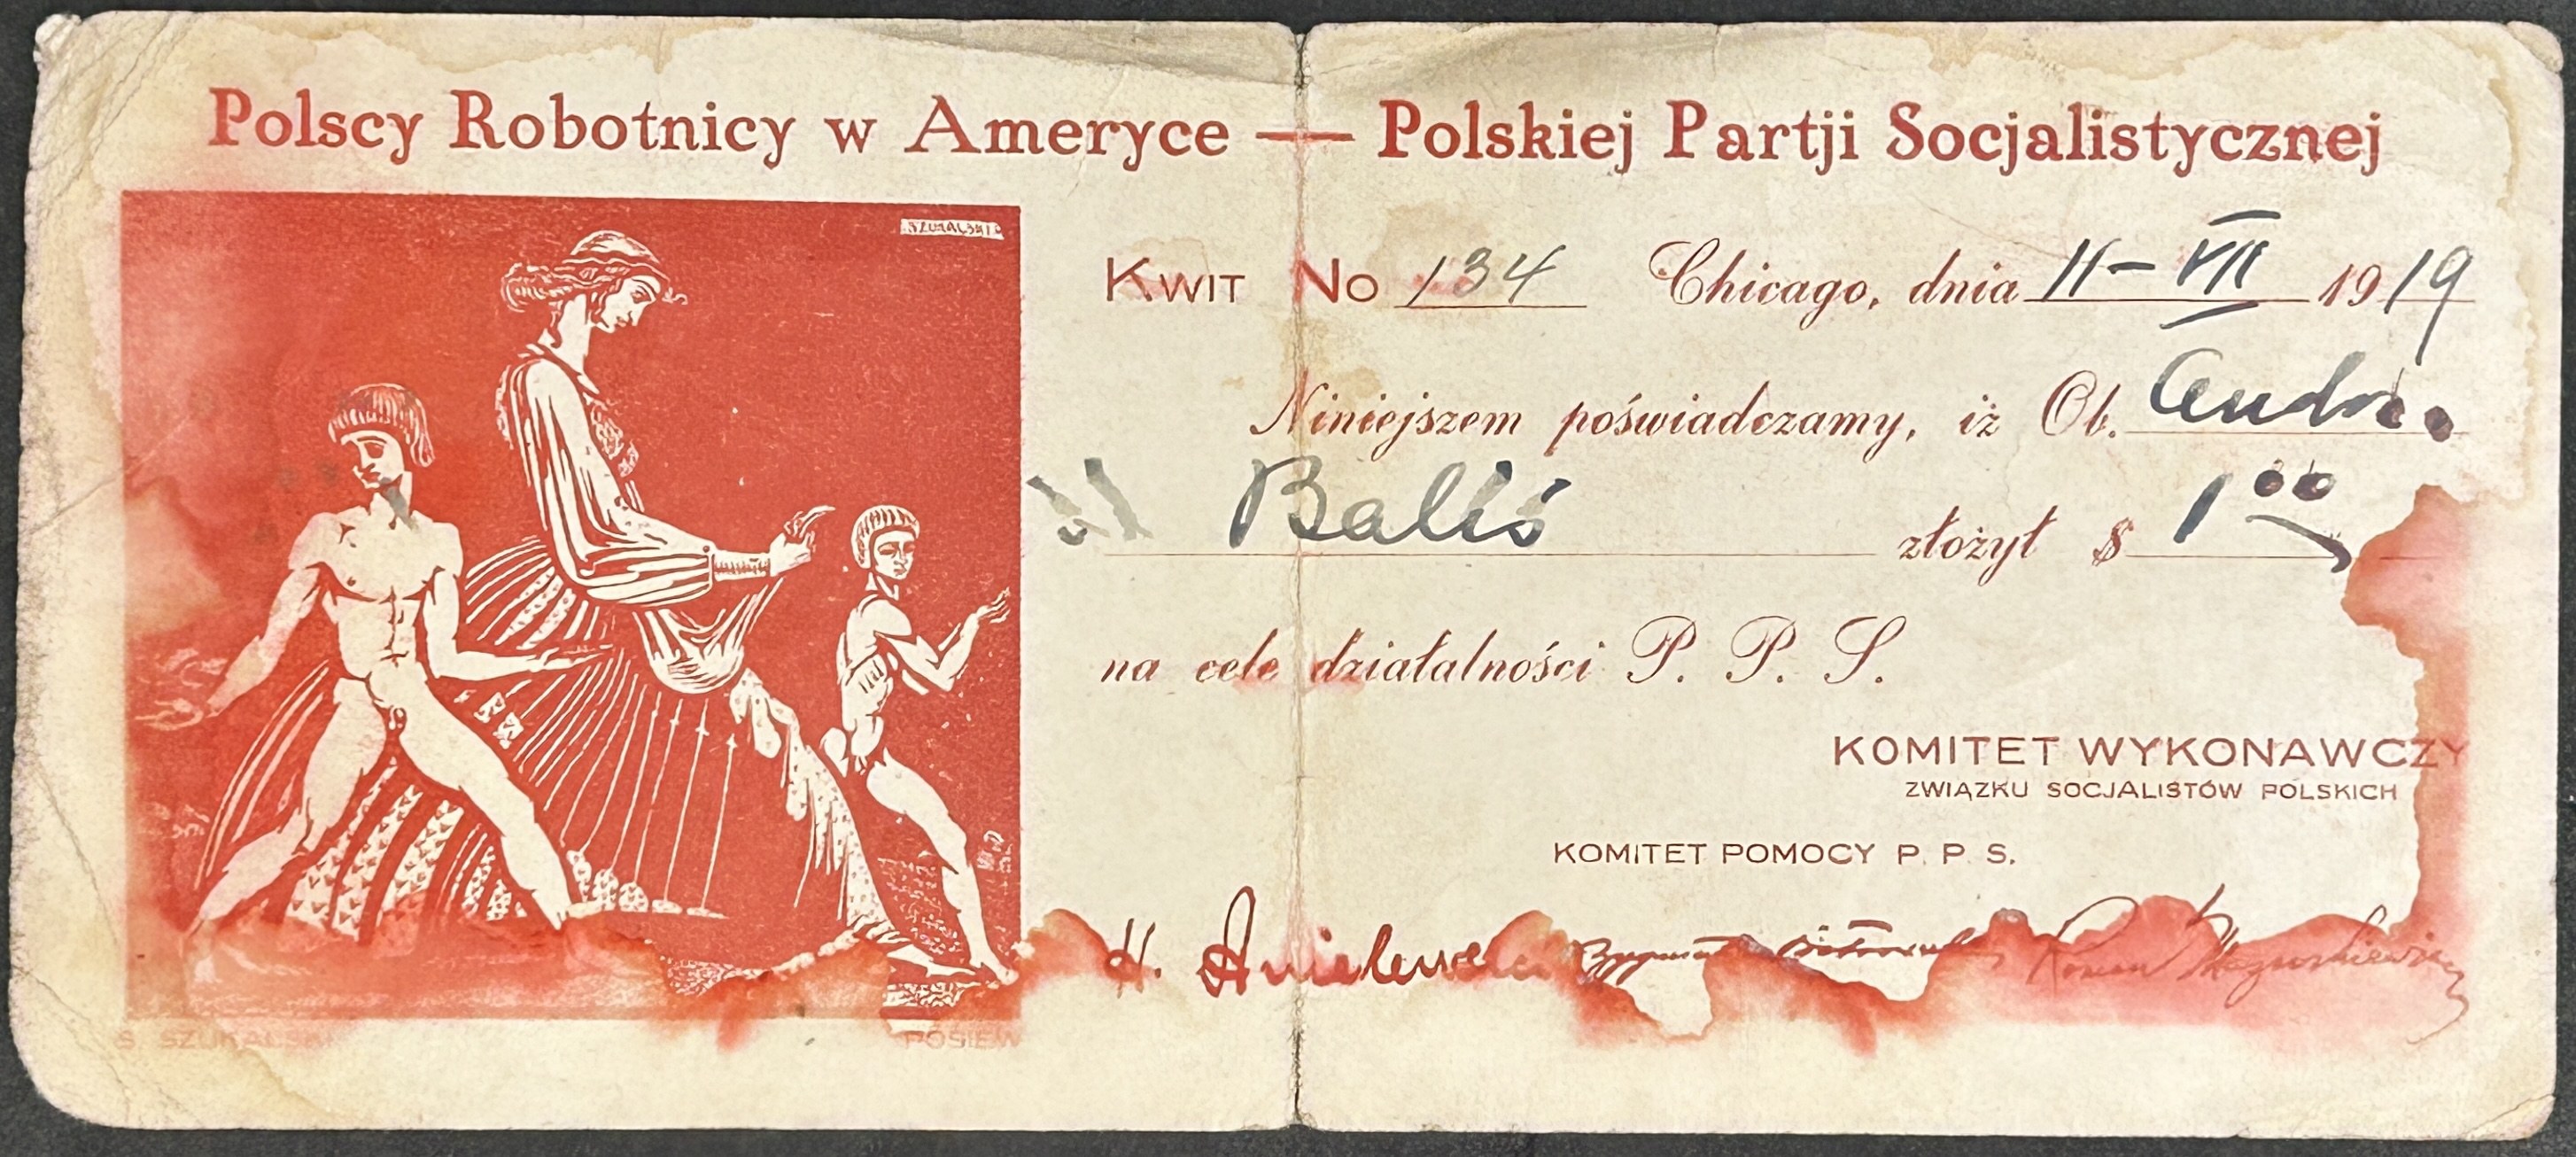 Polscy Robotnicy w Ameryce — Polskiej Partji Socjalistycznej
SZUKALSKI
KWIT NO 134 Chicago, dnia 11-VII 1919
Niniejszem poświadczamy, iż Ob.
Baliś złożył $ 1 00
na cele działalności P. P. S.
KOMITET WYKONAWCZY
ZWIĄZKU SOCJALISTÓW POLSKICH
KOMITET POMOCY P. P. S.
H.
S. SZUKALSKI POSIEW